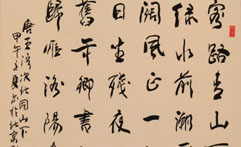 客路青山下
綠水前潮
闊風正一
日生殘夜
舊年鄉書
歸雁洛陽
唐王灣次北固山下
甲午之夏書於北京